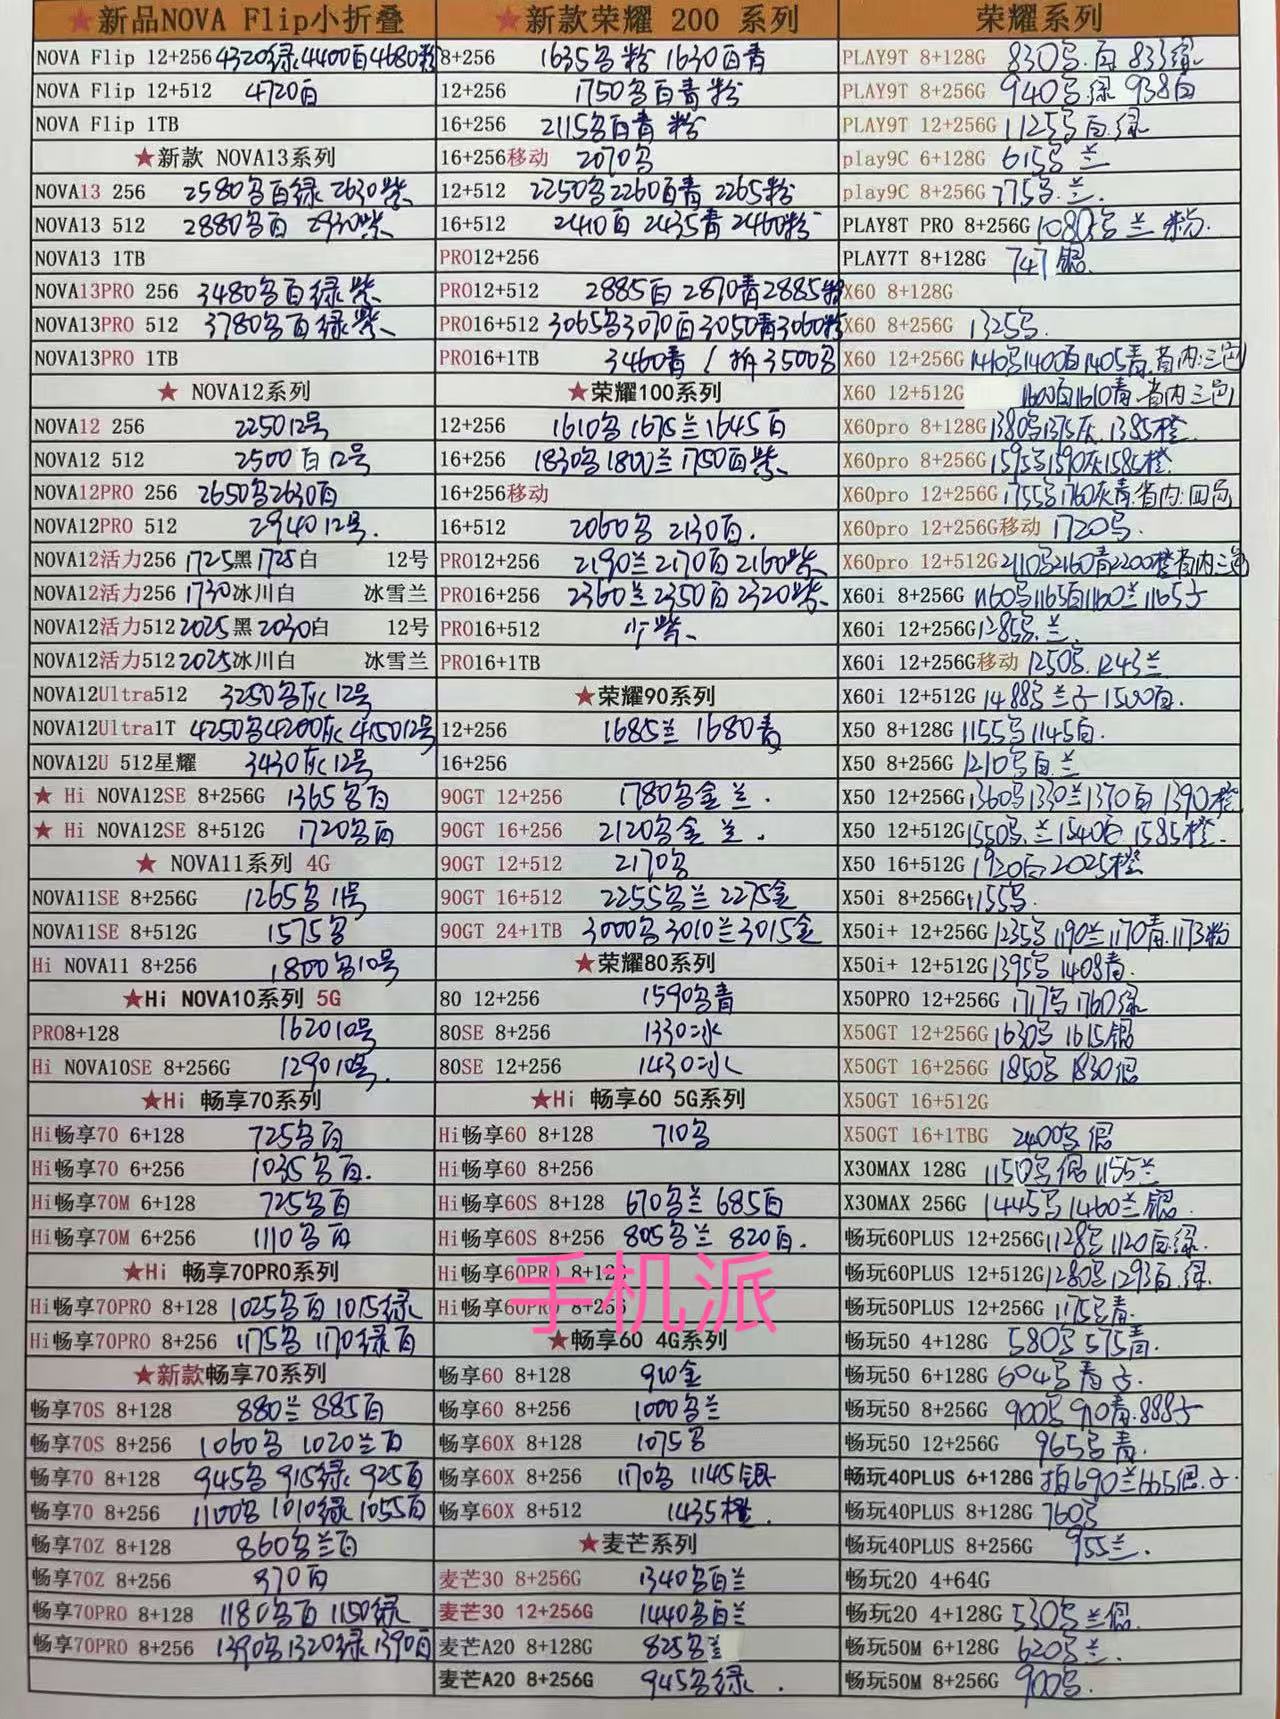 ★新品NOVA Flip小折叠
NOVA Flip 12+256 4320绿 4400百 4680粉
NOVA Flip 12+512 4720百
NOVA Flip 1TB
★新款 NOVA13系列
NOVA13 256 2580名百绿 2630紫
NOVA13 512 2880名百 2930紫
NOVA13 1TB
NOVA13PRO 256 3480名百绿紫
NOVA13PRO 512 3780名百绿紫
NOVA13PRO 1TB
★ NOVA12系列
NOVA12 256 2250 12号
NOVA12 512 2500百 12号
NOVA12PRO 256 2650名2630百
NOVA12PRO 512 2940 12号.
NOVA12活力256 1725黑1725白 12号
NOVA12活力256 1730冰川白 冰雪兰
NOVA12活力512 2025黑2030白 12号
NOVA12活力512 2025冰川白 冰雪兰
NOVA12Ultra512 3250名灰 12号
NOVA12Ultra1T 4250名4200灰 4150 12号
NOVA12U 512星耀 3430灰 12号
★ Hi NOVA12SE 8+256G 1365名百
★ Hi NOVA12SE 8+512G 1720名百
★ NOVA11系列 4G
NOVA11SE 8+256G 1265名 11号
NOVA11SE 8+512G 1575名
Hi NOVA11 8+256 1800名10号
★Hi NOVA10系列 5G
PRO8+128 1620 10号
Hi NOVA10SE 8+256G 1290 10号.
★Hi 畅享70系列
Hi畅享70 6+128 725名百
Hi畅享70 6+256 1035名百.
Hi畅享70M 6+128 725名百
Hi畅享70M 6+256 1110名百
★Hi 畅享70PRO系列
Hi畅享70PRO 8+128 1025名百 1015绿
Hi畅享70PRO 8+256 1175名 1170绿百
★新款畅享70系列
畅享70S 8+128 880兰 885百
畅享70S 8+256 1060名 1020兰百
畅享70 8+128 945名 915绿 925百
畅享70 8+256 1100名 1010绿 1055百
畅享70Z 8+128 860名兰百
畅享70Z 8+256 970百
畅享70PRO 8+128 1180名百 1150绿
畅享70PRO 8+256 1390名1320绿 1390百
★新款荣耀 200 系列
8+256 1635名粉 1630百青
12+256 1750名百青粉
16+256 2115名百青粉
16+256移动 2070名
12+512 2250名2260百青 2265粉
16+512 2410百 2435青 2460粉
PRO12+256
PRO12+512 2885百 2870青2885粉
PRO16+512 3065名3070百3050青3060粉
PRO16+1TB 3460青 / 拆3500名
★荣耀100系列
12+256 1610名 1675兰 1645百
16+256 1830名 1800兰 1750百紫
16+256移动
16+512 2060名 2130百.
PRO12+256 2190兰 2170百 2160紫
PRO16+256 2360兰 2350百 2320紫
PRO16+512 少紫
PRO16+1TB
★荣耀90系列
12+256 1685兰 1680青
16+256
90GT 12+256 1780名金兰.
90GT 16+256 2120名金兰.
90GT 12+512 2170名
90GT 16+512 2255名兰 2275金
90GT 24+1TB 3000名 3010兰 3015金
★荣耀80系列
80 12+256 1590名青
80SE 8+256 1330冰
80SE 12+256 1430冰
★Hi 畅享60 5G系列
Hi畅享60 8+128 710名
Hi畅享60 8+256
Hi畅享60S 8+128 670名兰 685百
Hi畅享60S 8+256 805名兰 820百.
Hi畅享60PRO 8+128
Hi畅享60PRO 8+256
手机派
★畅享60 4G系列
畅享60 8+128 910金
畅享60 8+256 1000名兰
畅享60X 8+128 1075名
畅享60X 8+256 1170名 1145银
畅享60X 8+512 1435橙.
★麦芒系列
麦芒30 8+256G 1340名百兰
麦芒30 12+256G 1440名百兰
麦芒A20 8+128G 825名兰
麦芒A20 8+256G 945名绿.
荣耀系列
PLAY9T 8+128G 830名.百 833绿
PLAY9T 8+256G 940名.绿 938百
PLAY9T 12+256G 1125名百.绿
play9C 6+128G 615名兰
play9C 8+256G 775名.兰.
PLAY8T PRO 8+256G 1080名兰 粉.
PLAY7T 8+128G 747银.
X60 8+128G
X60 8+256G 1325名.
X60 12+256G 1410名1400百1405青.省内:三色
X60 12+512G 1600百1610青.省内三色
X60pro 8+128G 1380名1375灰.1385橙.
X60pro 8+256G 1595名1590灰1585橙.
X60pro 12+256G 1755名1760灰青.省内:四色
X60pro 12+256G移动 1720名.
X60pro 12+512G 2110名2160青2200橙省内三色
X60i 8+256G 1160名1165百1160兰1165子
X60i 12+256G 1285名.兰.
X60i 12+256G移动 1250名.1243兰
X60i 12+512G 1488名兰子1500百.
X50 8+128G 1155名1145百.
X50 8+256G 1210名百.兰
X50 12+256G 1360名1330兰1370百1390橙.
X50 12+512G 1550名.兰1540百.1585橙.
X50 16+512G 1920百2025橙
X50i 8+256G 1155名.
X50i+ 12+256G 1235名1190兰1170青.1173粉
X50i+ 12+512G 1395名1408青.
X50PRO 12+256G 1717名1760绿
X50GT 12+256G 1630名 1615银
X50GT 16+256G 1850名 1830银
X50GT 16+512G
X50GT 16+1TBG 2400名银
X30MAX 128G 1150名银1155兰
X30MAX 256G 1445名1460兰银.
畅玩60PLUS 12+256G 1128名1120百.绿.
畅玩60PLUS 12+512G 1280名1293百.绿.
畅玩50PLUS 12+256G 1175名青.
畅玩50 4+128G 580名575青.
畅玩50 6+128G 604名青子.
畅玩50 8+256G 900名910青.888子
畅玩50 12+256G 965名青.
畅玩40PLUS 6+128G 拍690兰665银.子.
畅玩40PLUS 8+128G 760名
畅玩40PLUS 8+256G 955兰.
畅玩20 4+64G
畅玩20 4+128G 530名兰银.
畅玩50M 6+128G 620名兰.
畅玩50M 8+256G 900名.